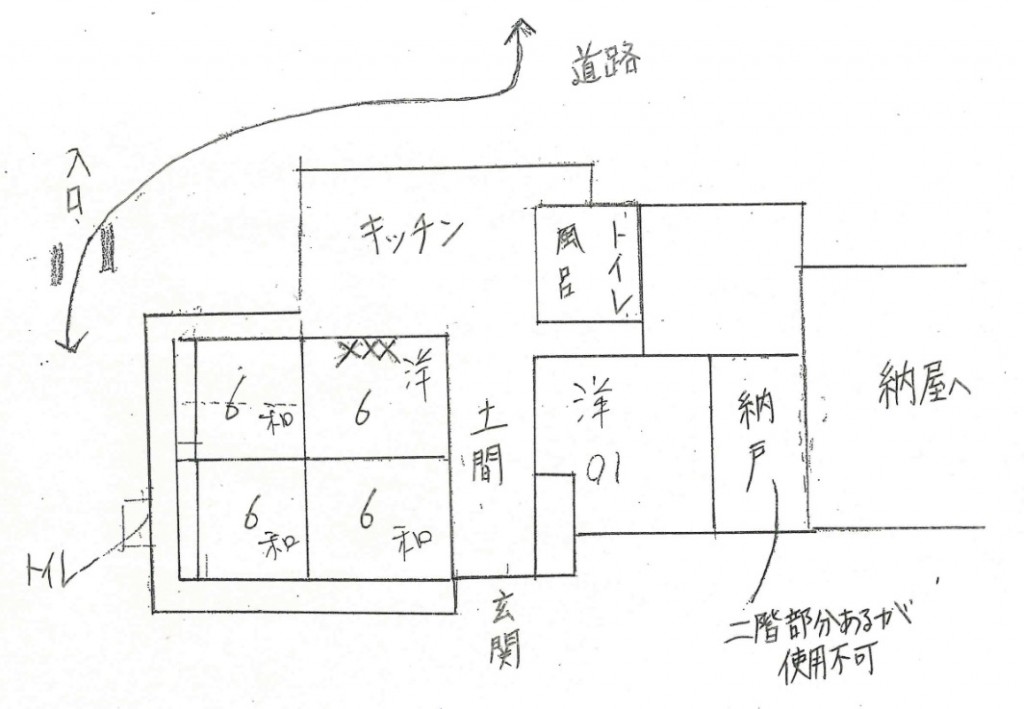 道路
入口
キッチン
風呂
トイレ
洋
6
和
6
土間
洋
納戸
納屋へ
6
和
6
和
トイレ
玄関
二階部分あるが
使用不可